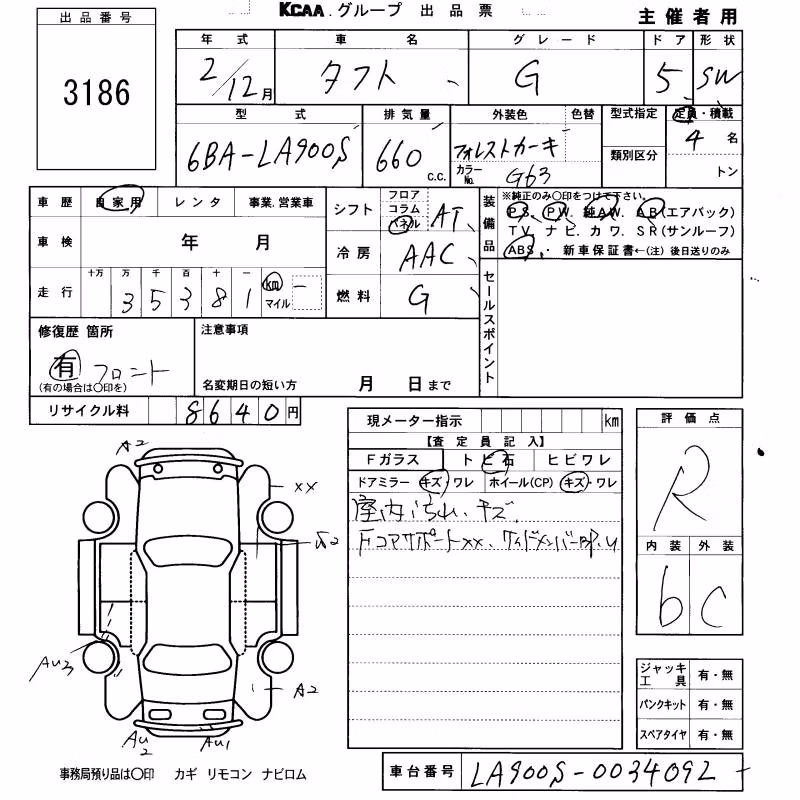 KCAA.グループ 出品票
主催者用
出品番号
3186
年式 車名 グレード ドア 形状
2/12月 タフト G 5 SW
型式 排気量 外装色 色替 型式指定 定員・積載
6BA-LA900S 660 c.c. フォレストカーキ カラーNo. G63 類別区分 4名 トン
車歴 自家用 レンタ 事業.営業車
車検 年 月
走行 十万 万 千 百 十 一
3 5 3 8 1 km マイル
シフト フロア コラム パネル AT
冷房 AAC
燃料 G
装備品 ※純正のみ〇印をつけて下さい。
P S. P W. 純AW. A B(エアバック)
T V. ナビ. カワ. S R(サンルーフ)
ABS. ・ 新車保証書←(注)後日送りのみ
セールスポイント
修復歴 箇所
有 フロント
(有の場合は〇印を)
注意事項
名変期日の短い方 月 日まで
リサイクル料 8640円
現メーター指示 km
【査定員記入】
Fガラス トビ石 ヒビワレ
ドアミラー キズ・ワレ ホイール(CP) キズ・ワレ
室内 キズ
Fコアサポートxx、サイドメンバー
評価点
R
内装 外装
b C
A2
xx
A2
AU3
A2
AU2 AU1
ジャッキ工具 有・無
パンクキット 有・無
スペアタイヤ 有・無
事務局預り品は〇印 カギ リモコン ナビロム
車台番号 LA900S-0034092